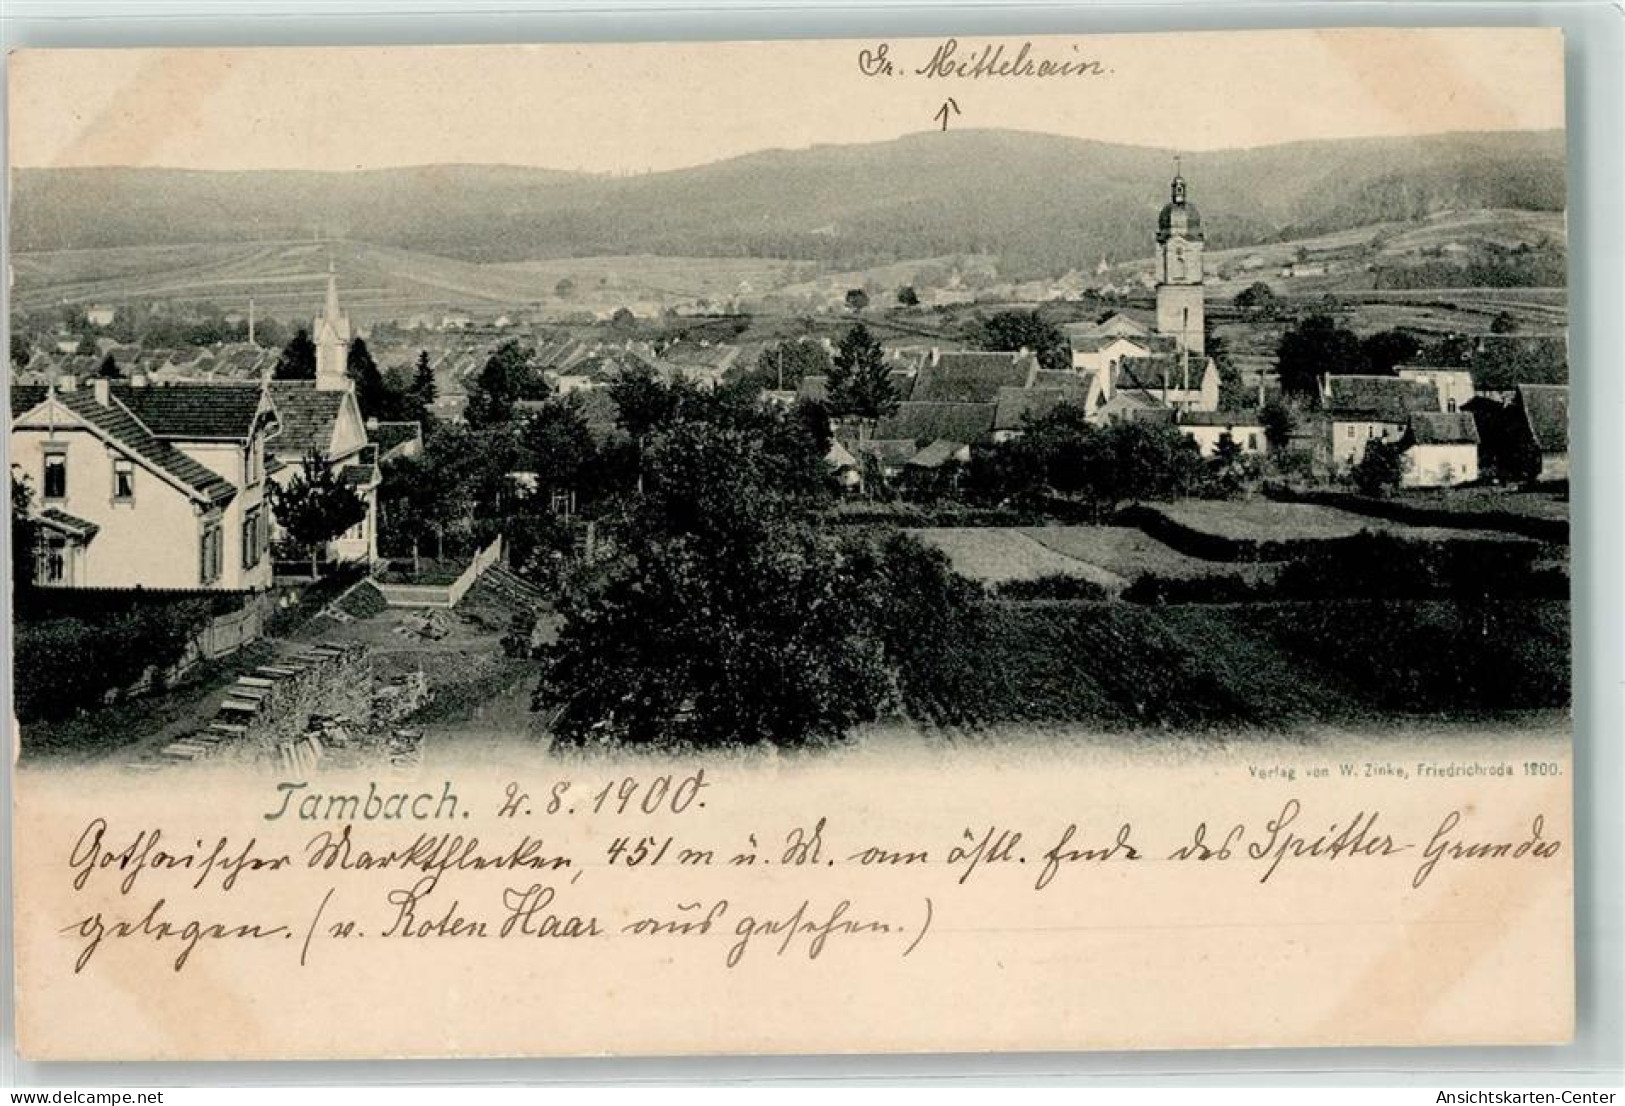 Gr. Mittelrain.
Verlag von W. Zinke, Friedrichroda 1900.
Tambach. 2. 8. 1900.
Gothaischer Marktflecken, 451 m ü. M. am östl. Ende des Spitter-Grundes
gelegen. (v. Roten Haar aus gesehen.)
www.delcampe.net
Ansichtskarten-Center